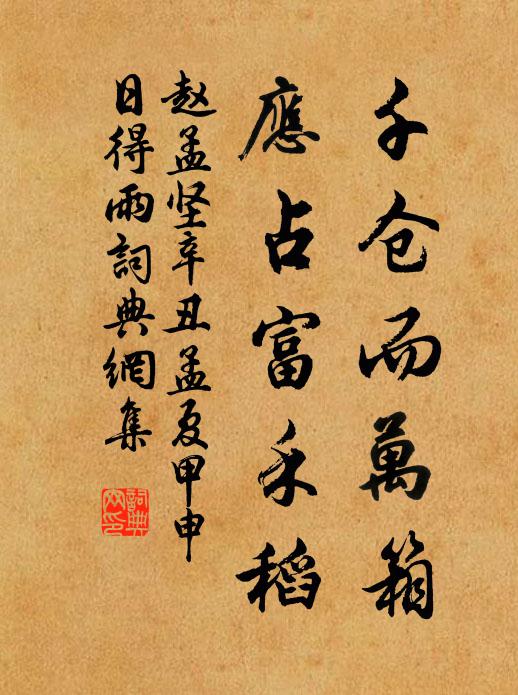 千仓而萬箱
應占富禾稻
赵孟坚辛丑孟夏甲申
日得雨詞典網集
詞典網印